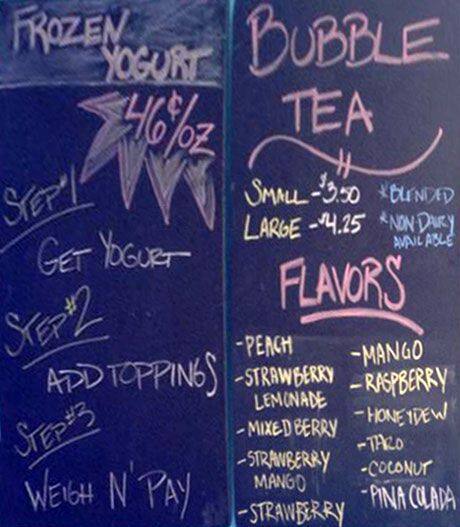 FROZEN
YOGURT
46¢/oz
STEP #1
GET YOGURT
STEP #2
ADD TOPPINGS
STEP #3
WEIGH N' PAY
BUBBLE
TEA
SMALL - $3.50
LARGE - $4.25
*BLENDED
*NON DAIRY
AVAILABLE
FLAVORS
- PEACH
- STRAWBERRY
LEMONADE
- MIXED BERRY
- STRAWBERRY
MANGO
- STRAWBERRY
- MANGO
- RASPBERRY
- HONEYDEW
- TARO
- COCONUT
- PINA COLADA